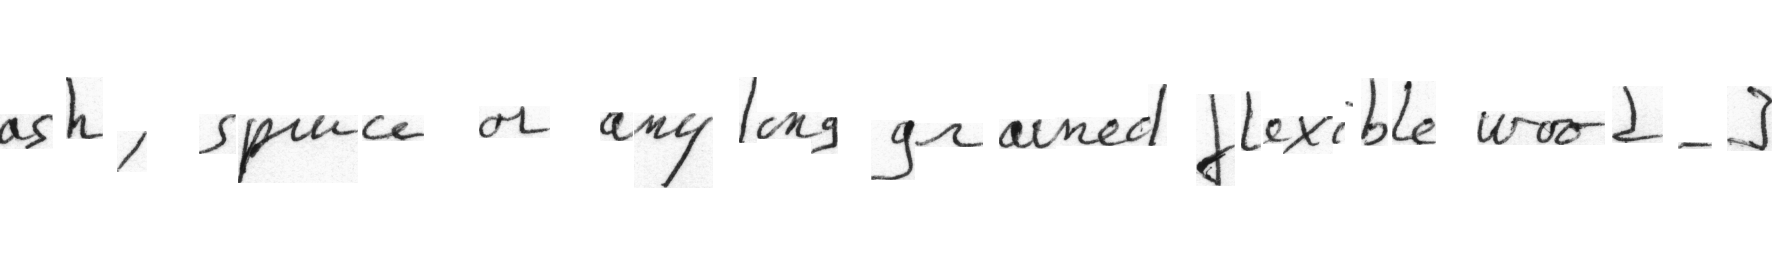 ash, spruce or any long grained flexible wood - 3